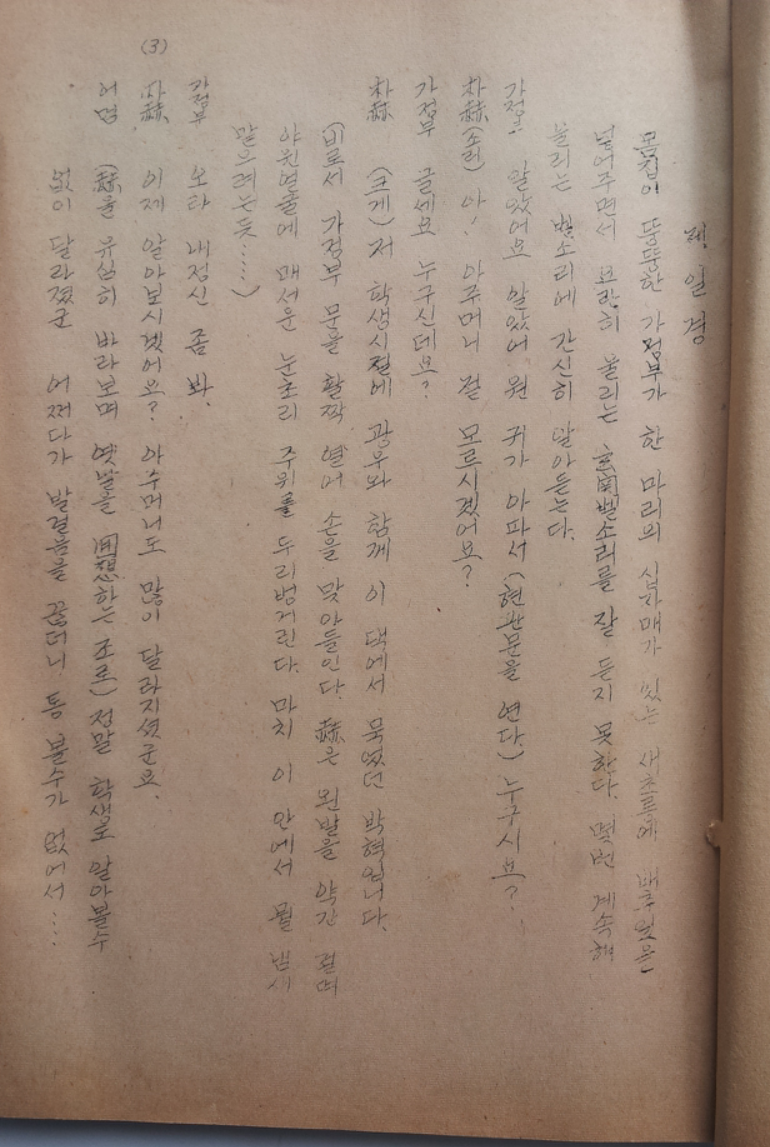 제 일 경
몸집이 뚱뚱한 가정부가 한 마리의 십자매가 있는 새초롱에 배추잎을
넣어주면서 요란히 울리는 玄関벨소리를 잘 듣지 못한다. 몇번 계속해
울리는 벨소리에 간신히 알아듣는다.
가정부 알았어요 알았어 원 귀가 아파서 (현관문을 연다.) 누구시요?
朴赫 (소리) 아! 아주머니 절 모르시겠어요?
가정부 글세요 누구신데요?
朴赫 (크게) 저 학생시절에 광우와 함께 이 댁에서 묵었던 박혁입니다.
(비로서 가정부 문을 활짝 열어 손을 맞아들인다. 赫은 왼발을 약간 절며
야윈얼굴에 매서운 눈초리 주위를 두리벙거린다. 마치 이 안에서 뭘 냄새
맡으려는듯……)
가정부 오라 내정신 좀 봐.
朴赫 이제 알아보시겠어요? 아주머니도 많이 달라지셨군요.
어멈 (赫을 유심히 바라보며 옛날을 回想하는 조로) 정말 학생도 알아볼수
없이 달라졌군 어쩌다가 발걸음을 끊더니 통 볼수가 없어서……
(3)